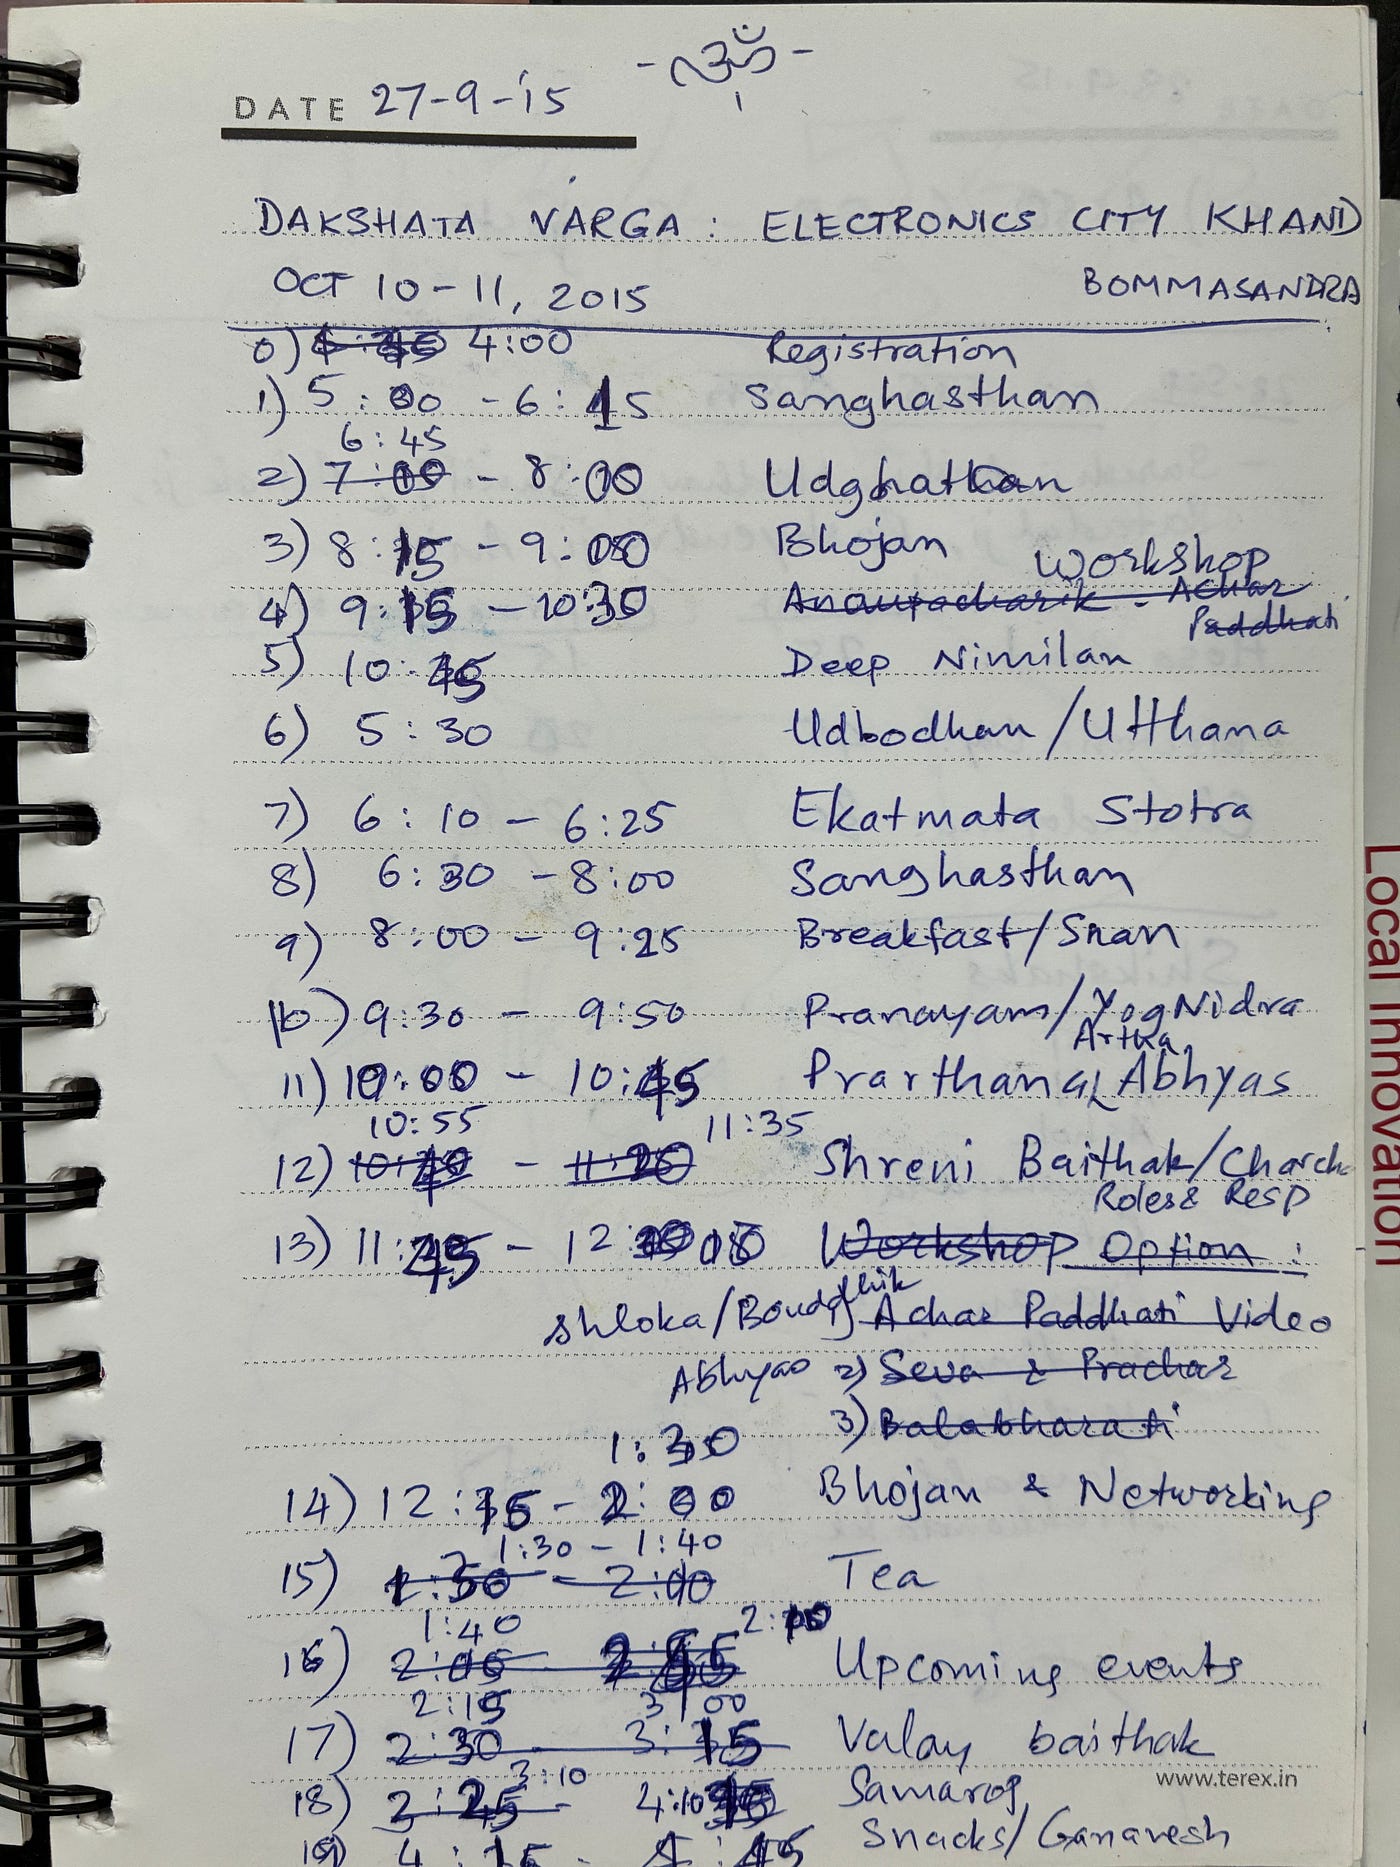 - ॐ -
DATE 27-9-15
DAKSHATA VARGA : ELECTRONICS CITY KHAND
OCT 10-11, 2015 BOMMASANDRA
0) 4:00 Registration
1) 5:00 - 6:15 Sanghasthan
6:45
2) 7:00 - 8:00 Udghathan
3) 8:15 - 9:00 Bhojan
Workshop
4) 9:15 - 10:30 Anaupacharik - Achar
Paddhati
5) 10:45 Deep Nimilan
6) 5:30 Udbodhan/Utthana
7) 6:10 - 6:25 Ekatmata Stotra
8) 6:30 - 8:00 Sanghasthan
9) 8:00 - 9:25 Breakfast/Snan
10) 9:30 - 9:50 Pranayam/YogNidra
Artha
11) 10:00 - 10:45 Prarthana Abhyas
10:55 11:35
12) - 11:20 Shreni Baithak/Charch
Roles & Resp
13) 11:45 - 12: Workshop Option :
Shloka/Bouddhik Achar Paddhati Video
Abhyas 2) Seva & Prachar
3) Balabharati
1:30
14) 12:15 - 2:00 Bhojan & Networking
1:30 - 1:40
15) - 2:00 Tea
1:40 2:10
16) 2:05 Upcoming events
2:15 3:00
17) 2:30 - 3:15 Valay baithak
3:10
18) - 4:10 Samarop
19) 4:15 - Snacks/Ganavesh
www.terex.in
Local Innovation